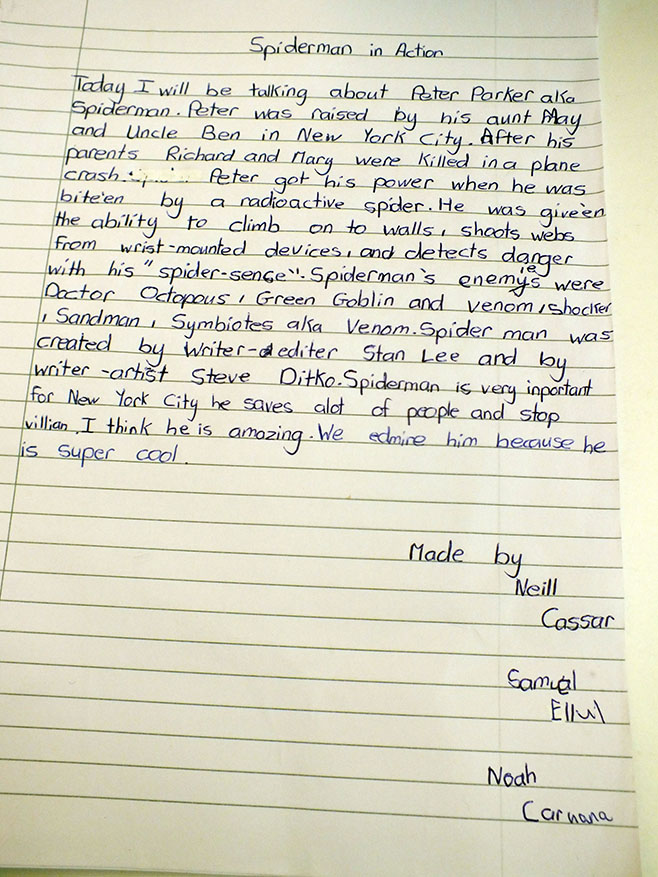 Spiderman in Action
Today I will be talking about Peter Parker aka
Spiderman. Peter was raised by his aunt May
and Uncle Ben in New York City. After his
parents Richard and Mary were killed in a plane
crash. Peter got his power when he was
bite'en by a radioactive spider. He was given'en
the ability to climb on to walls, shoots webs
from wrist-mounted devices, and detects danger
with his "spider-sense". Spiderman's enemies were
Doctor Octopous, Green Goblin and venom, shocker
, Sandman, Symbiotes aka Venom. Spider man was
created by Writer-editer Stan Lee and by
writer-artist Steve Ditko. Spiderman is very inportant
for New York City he saves alot of people and stop
villian. I think he is amazing. We edmire him because he
is super cool.
Made by
Neill
Cassar
Samuel
Ellul
Noah
Caruana